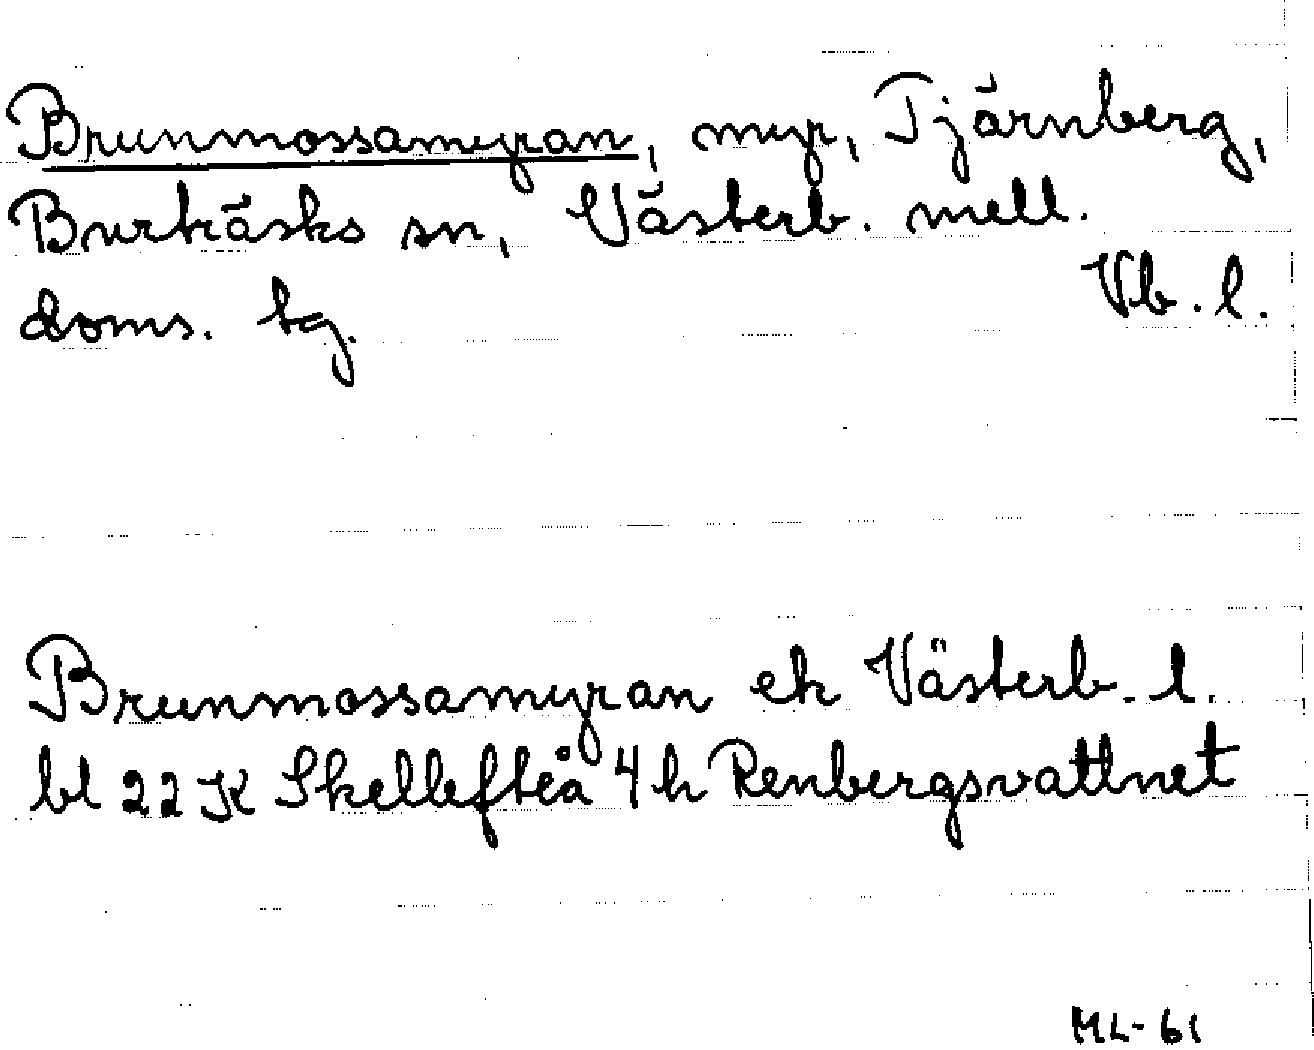 Brunmossamyran, myr, Tjärnberg,
Burträsks sn, Västerb. mell.
doms. tg. Vb. l.
Brunmossamyran ek Västerb. l.
bl 22 K Skellefteå 4 h Renbergsvattnet
ML-61